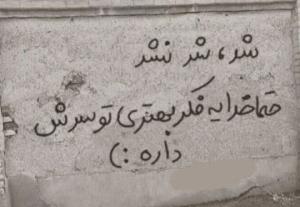 شد، شد نشد
حتما خدا یه فکر بهتری تو سرش
داره :)